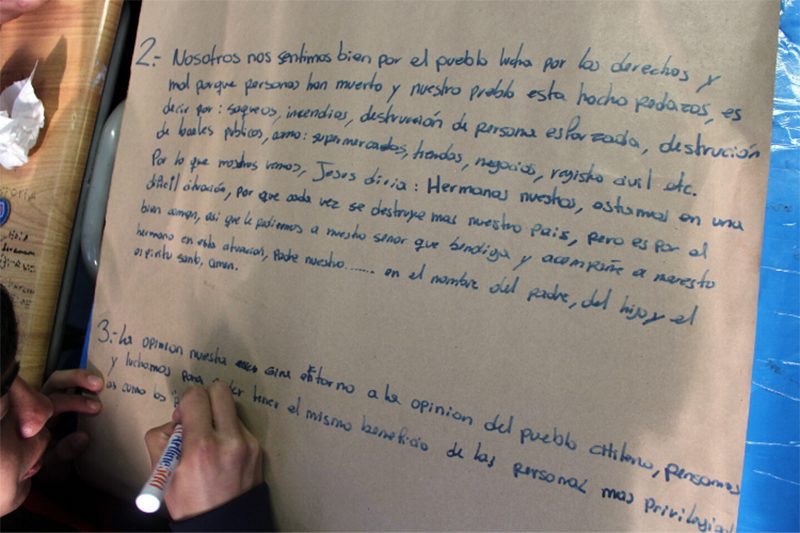 2.- Nosotros nos sentimos bien por el pueblo lucha por los derechos y
mal porque personas han muerto y nuestro pueblo esta hacho pedazos, es
decir por: saqueos, incendios, destrucción de persona esforzada, destrución
de locales publicos, como: supermercados, tiendas, negocios, registro civil etc.
Por lo que mostros vemos, Jesus diria: Hermanos nuestros, estamos en una
dificil situación, por que cada vez se destruye mas nuestro pais, pero es por el
bien comun, asi que le pedimos a nuestro señor que bendiga y acompañe a nuestro
hermano en esta situacion, Padre nuestro....... en el nombre del padre, del hijo y el
espiritu santo, amen.
3.- La opinion nuestra gira entorno a la opinion del pueblo chileno, pensamos
y luchamos para poder tener el mismo beneficio de las personas mas privilegiad
as como los